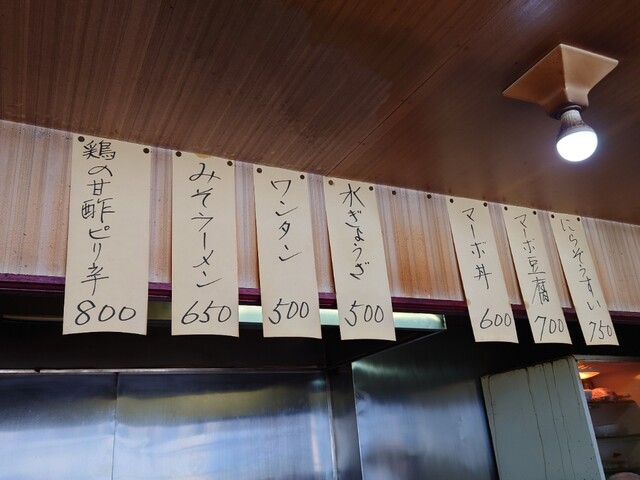 鶏の甘酢ピリ辛
800
みそラーメン
650
ワンタン
500
水ぎょうざ
500
マーボ丼
600
マーボ豆腐
700
にらぞうすい
750